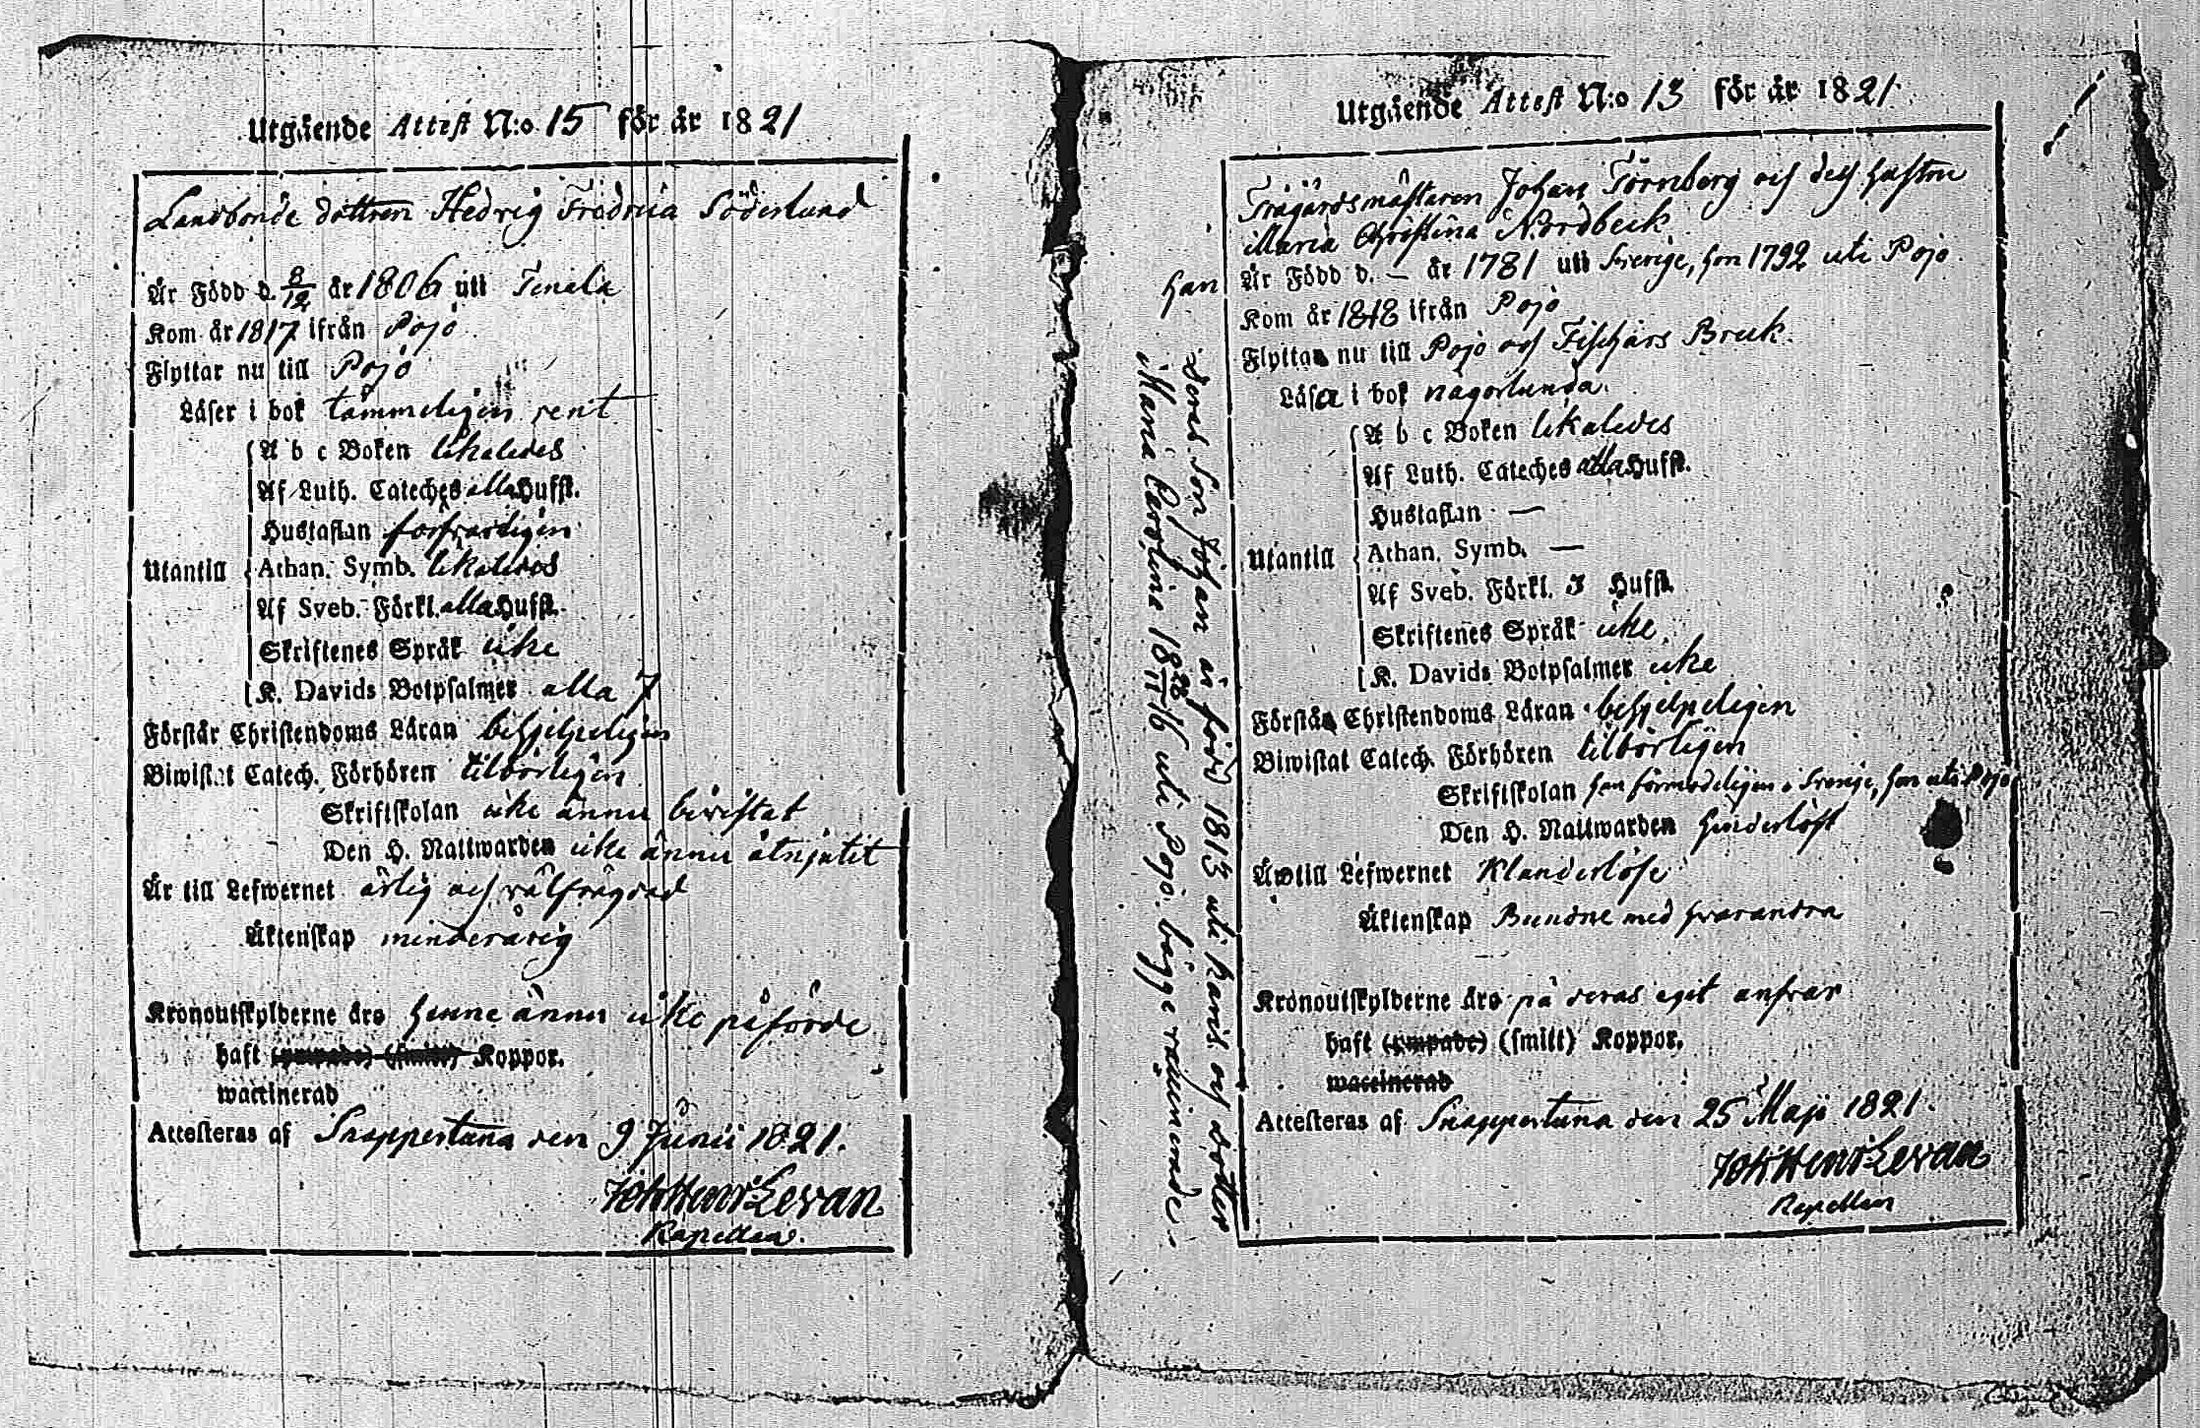 Utgående Attest N:o 15 för år 1821
Landbonde dottren Hedvig Fredrica Söderlund
Är Född d. 8/12 år 1806 uti Tenala
Kom år 1817 ifrån Pojo
Flyttar nu till Pojo
Läser i bok tämmeligen rent
A b c Boken likaledes
Af Luth. Cateches alla Hufst.
Hustaflan
Utantill Athan. Symb. likaledes
Af Sveb. Förkl. alla Hufst.
Skriftenes Språk icke
K. Davids Botpsalmer alla 7
Förstår Christendoms Läran behjelpeligen
Biwistat Catech. Förhören tilbörligen
Skriftskolan icke ännu bevistat
Den H. Nattwarden icke ännu åtnjutit
Är till Lefwernet ärlig och välfrägdad
Äktenskap minderårig
Kronoutskylderne äro henne ännu icke påförde
haft (ympade) (smitt) Koppor.
waccinerad
Attesteras af Snappertuna den 9 Junii 1821.
Joh Henr Levan
Kapellan.
Utgående Attest N:o 13 för år 1821.
Trägårdsmästaren Johan Törnberg och dess hustru
Maria Christina Nordbeck
han Är Född d. – år 1781 uti Sverige, hon 1792 uti Pojo.
Kom år 1818 ifrån Pojo
Flytta nu till Pojo och Fiskars Bruk.
Läsa i bok någorlunda.
A b c Boken likaledes
Af Luth. Cateches alla Hufst.
Hustaflan —
Utantill Athan. Symb. —
Af Sveb. Förkl. 3 Hufst.
Skriftenes Språk icke
K. Davids Botpsalmer icke
Förstå Christendoms Läran behjelpeligen
Biwistat Catech. Förhören tilbörligen
Skriftskolan han förmodeligen i Sverige, hon uti Pojo
Den H. Nattwarden hinderlöst
Äro till Lefwernet Klanderlöse
Äktenskap Bundne med hvarandra
Kronoutskylderne äro på deras eget ansvar
haft (ympade) (smitt) Koppor.
waccinerad
Attesteras af Snappertuna den 25 Maji 1821.
Joh Henr Levan
Kapellan
deras Son Johan är född 1813 uti Karis och dotter
Maria Carolina 18 16 uti Pojo. bägge vaccinerade.